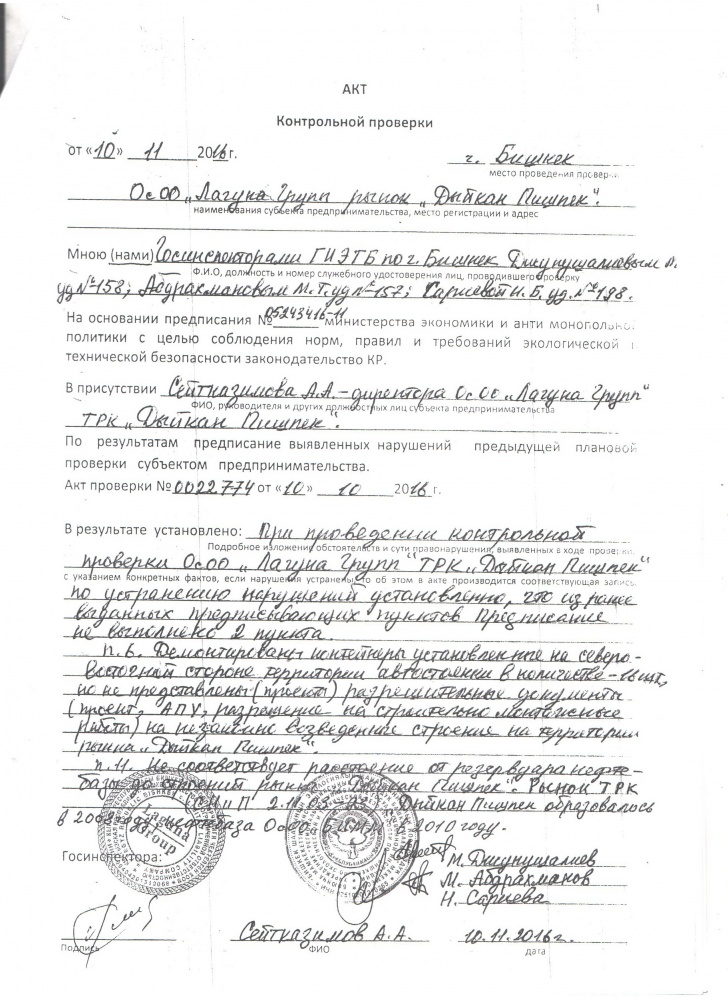 АКТ
Контрольной проверки
от «10» 11 2016 г.
г. Бишкек
место проведения провер
ОсОО „Лагуна Групп рынок „Дыйкан Пишпек".
наименования субъекта предпринимательства, место регистрации и адрес
Мною (нами) Госинспекторами ГИЭТБ по г. Бишкек Джунушалиевым М.
Ф.И.О, должность и номер служебного удостоверения лиц, проводившего проверку
уд №158; Абдрахмановым М.Т. уд №157; Сариевой Н. Б. уд. №198.
На основании предписания № 05243416-11 министерства экономики и анти монопольно
политики с целью соблюдения норм, правил и требований экологической и
технической безопасности законодательство КР.
В присутствии Сейтказимова А.А. – директора ОсОО „Лагуна Групп"
ФИО, руководителя и других должностных лиц субъекта предпринимательства
ТРК „Дыйкан Пишпек".
По результатам предписание выявленных нарушений предыдущей плановой
проверки субъектом предпринимательства.
Акт проверки № 0022774 от «10» 10 2016 г.
В результате установлено: При проведении контрольной
Подробное изложение обстоятельств и сути правонарушения, выявленных в ходе провер
проверки ОсОО „Лагуна Групп" ТРК „Дыйкан Пишпек"
с указанием конкретных фактов, если нарушения устранены, то об этом в акте производится соответствующая запись
по устранению нарушений установленно, что из ранее
выданных предписывающих пунктов предписание
не выполнено 2 пункта.
п.6. Демонтированы контейнеры установленные на северо-
восточной стороне территории автостоянки в количестве – шт,
но не представлены (проекты) разрешительные документы
(проект, АПУ, разрешение на строительно монтажные
работы) на незаконно возведенное строения на территории
рынка „Дыйкан Пишпек".
п.11. Не соответсвует расстояние от резервуара нефте-
базы до строений рынка „Дыйкан Пишпек". Рынок ТРК
СНиП 2.11.03-93 „Дыйкан Пишпек образовалось
в 2003 году, нефтебаза ОсОО в 2010 году.
Laguna Group
Госинспектора:
М. Джунушалиев
М. Абдрахманов
Н. Сариева
Сейтказимов А.А. 10.11.2016г.
Подпись ФИО дата